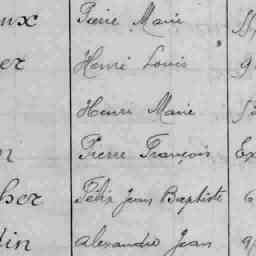 ux Pierre Marie
er Henri Louis 9
Henri Marie
n Pierre François Ex
cher Félix Jean Baptiste 6
din Alexandre Jean 9